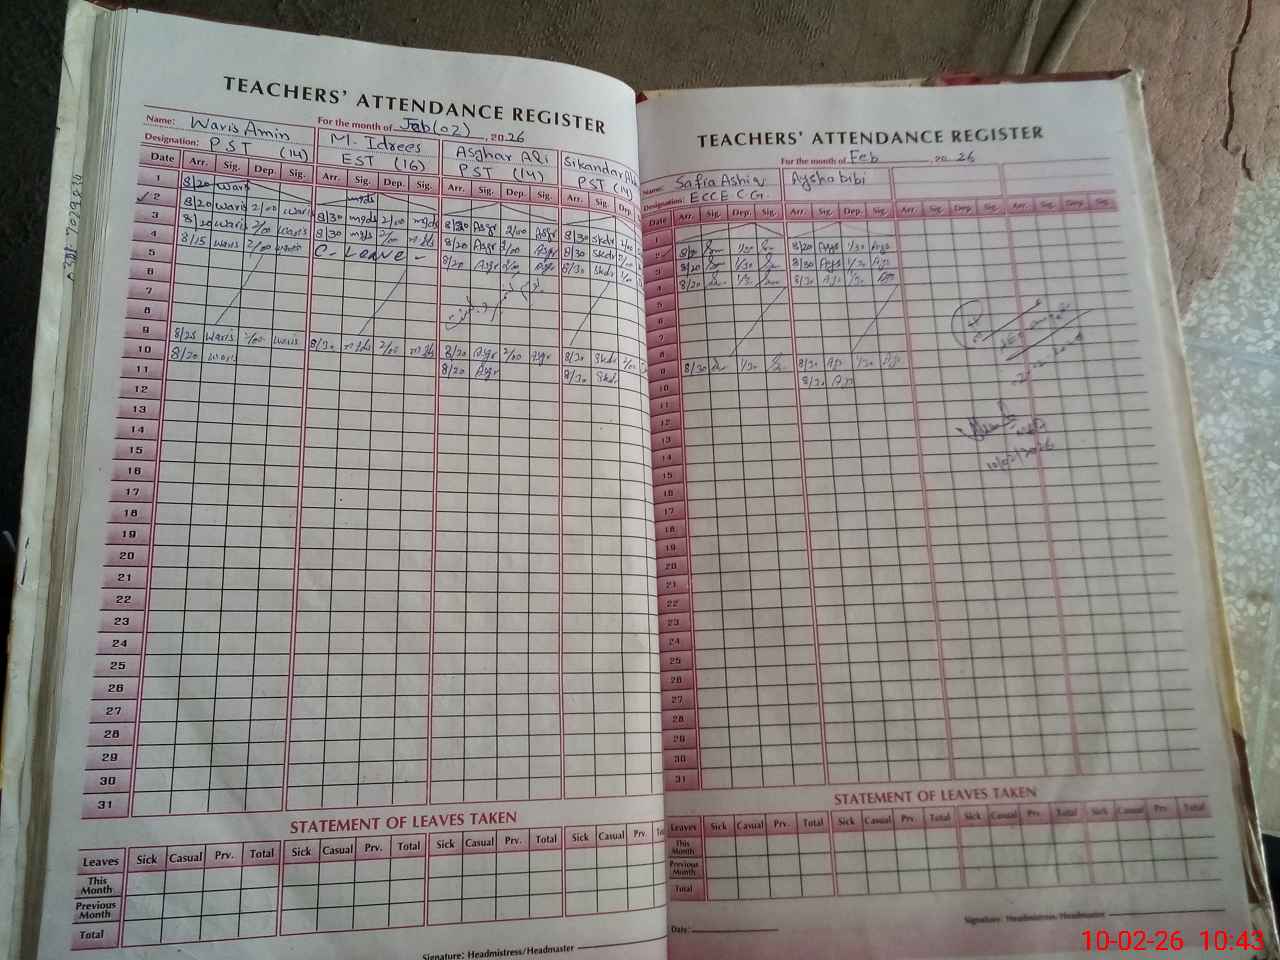 TEACHERS' ATTENDANCE REGISTER
For the month of Feb(02), 2026
Name: Waris Amin
M. Idrees
Asghar Ali
Sikandar
Designation: PST (14)
EST (16)
PST (14)
PST (14)
Date Arr. Sig. Dep. Sig. Arr. Sig. Dep. Sig. Arr. Sig. Dep. Sig. Arr. Sig. Dep.
1
2 8/20 Waris 2/00 Waris 8/30 mgds 2/00 mgds 8/30 Asgr 2/00 Asgr 8/30 Skdr
3 8/20 Waris 2/00 Waris 8/30 mgds 2/00 8/20 Asgr 2/00 Asgr 8/30 Skdr
4 8/15 Waris 2/00 Waris C- Leave - 8/20 Asgr 2/00 Asgr 8/30 Skdr
5
6
7
8
9 8/25 Waris 2/00 Waris 8/30 mgds 2/00 8/20 Asgr 2/00 Asgr 8/30 Skdr
10 8/20 Waris 8/20 Asgr 8/30 Skdr
11
12
13
14
15
16
17
18
19
20
21
22
23
24
25
26
27
28
29
30
31
STATEMENT OF LEAVES TAKEN
Leaves Sick Casual Prv. Total Sick Casual Prv. Total Sick Casual Prv. Total Sick Casual Prv.
This Month
Previous Month
Total
Signature: Headmistress/Headmaster
TEACHERS' ATTENDANCE REGISTER
For the month of Feb, 2026
Name: Safia Ashiq
Ayshabibi
Designation: ECCE C.G.
Date Arr. Sig. Dep. Sig. Arr. Sig. Dep. Sig. Arr. Sig. Dep. Sig. Arr. Sig. Dep. Sig.
1
2 1/30 8/20 Ays 1/30 Ays
3 8/20 1/30 8/30 Ays 1/30 Ays
4 8/20 1/30 8/30 Ays 1/30 Ays
5
6
7
8
9 8/30 1/30 8/30 Ays 1/30 Ays
10 8/30 Ays
11
12
13
14
15
16
17
18
19
20
21
22
23
24
25
26
27
28
29
30
31
10/02/2026
STATEMENT OF LEAVES TAKEN
Leaves Sick Casual Prv. Total Sick Casual Prv. Total Sick Casual Prv. Total Sick Casual Prv. Total
This Month
Previous Month
Total
Date:
Signature: Headmistress/Headmaster
10-02-26 10:43